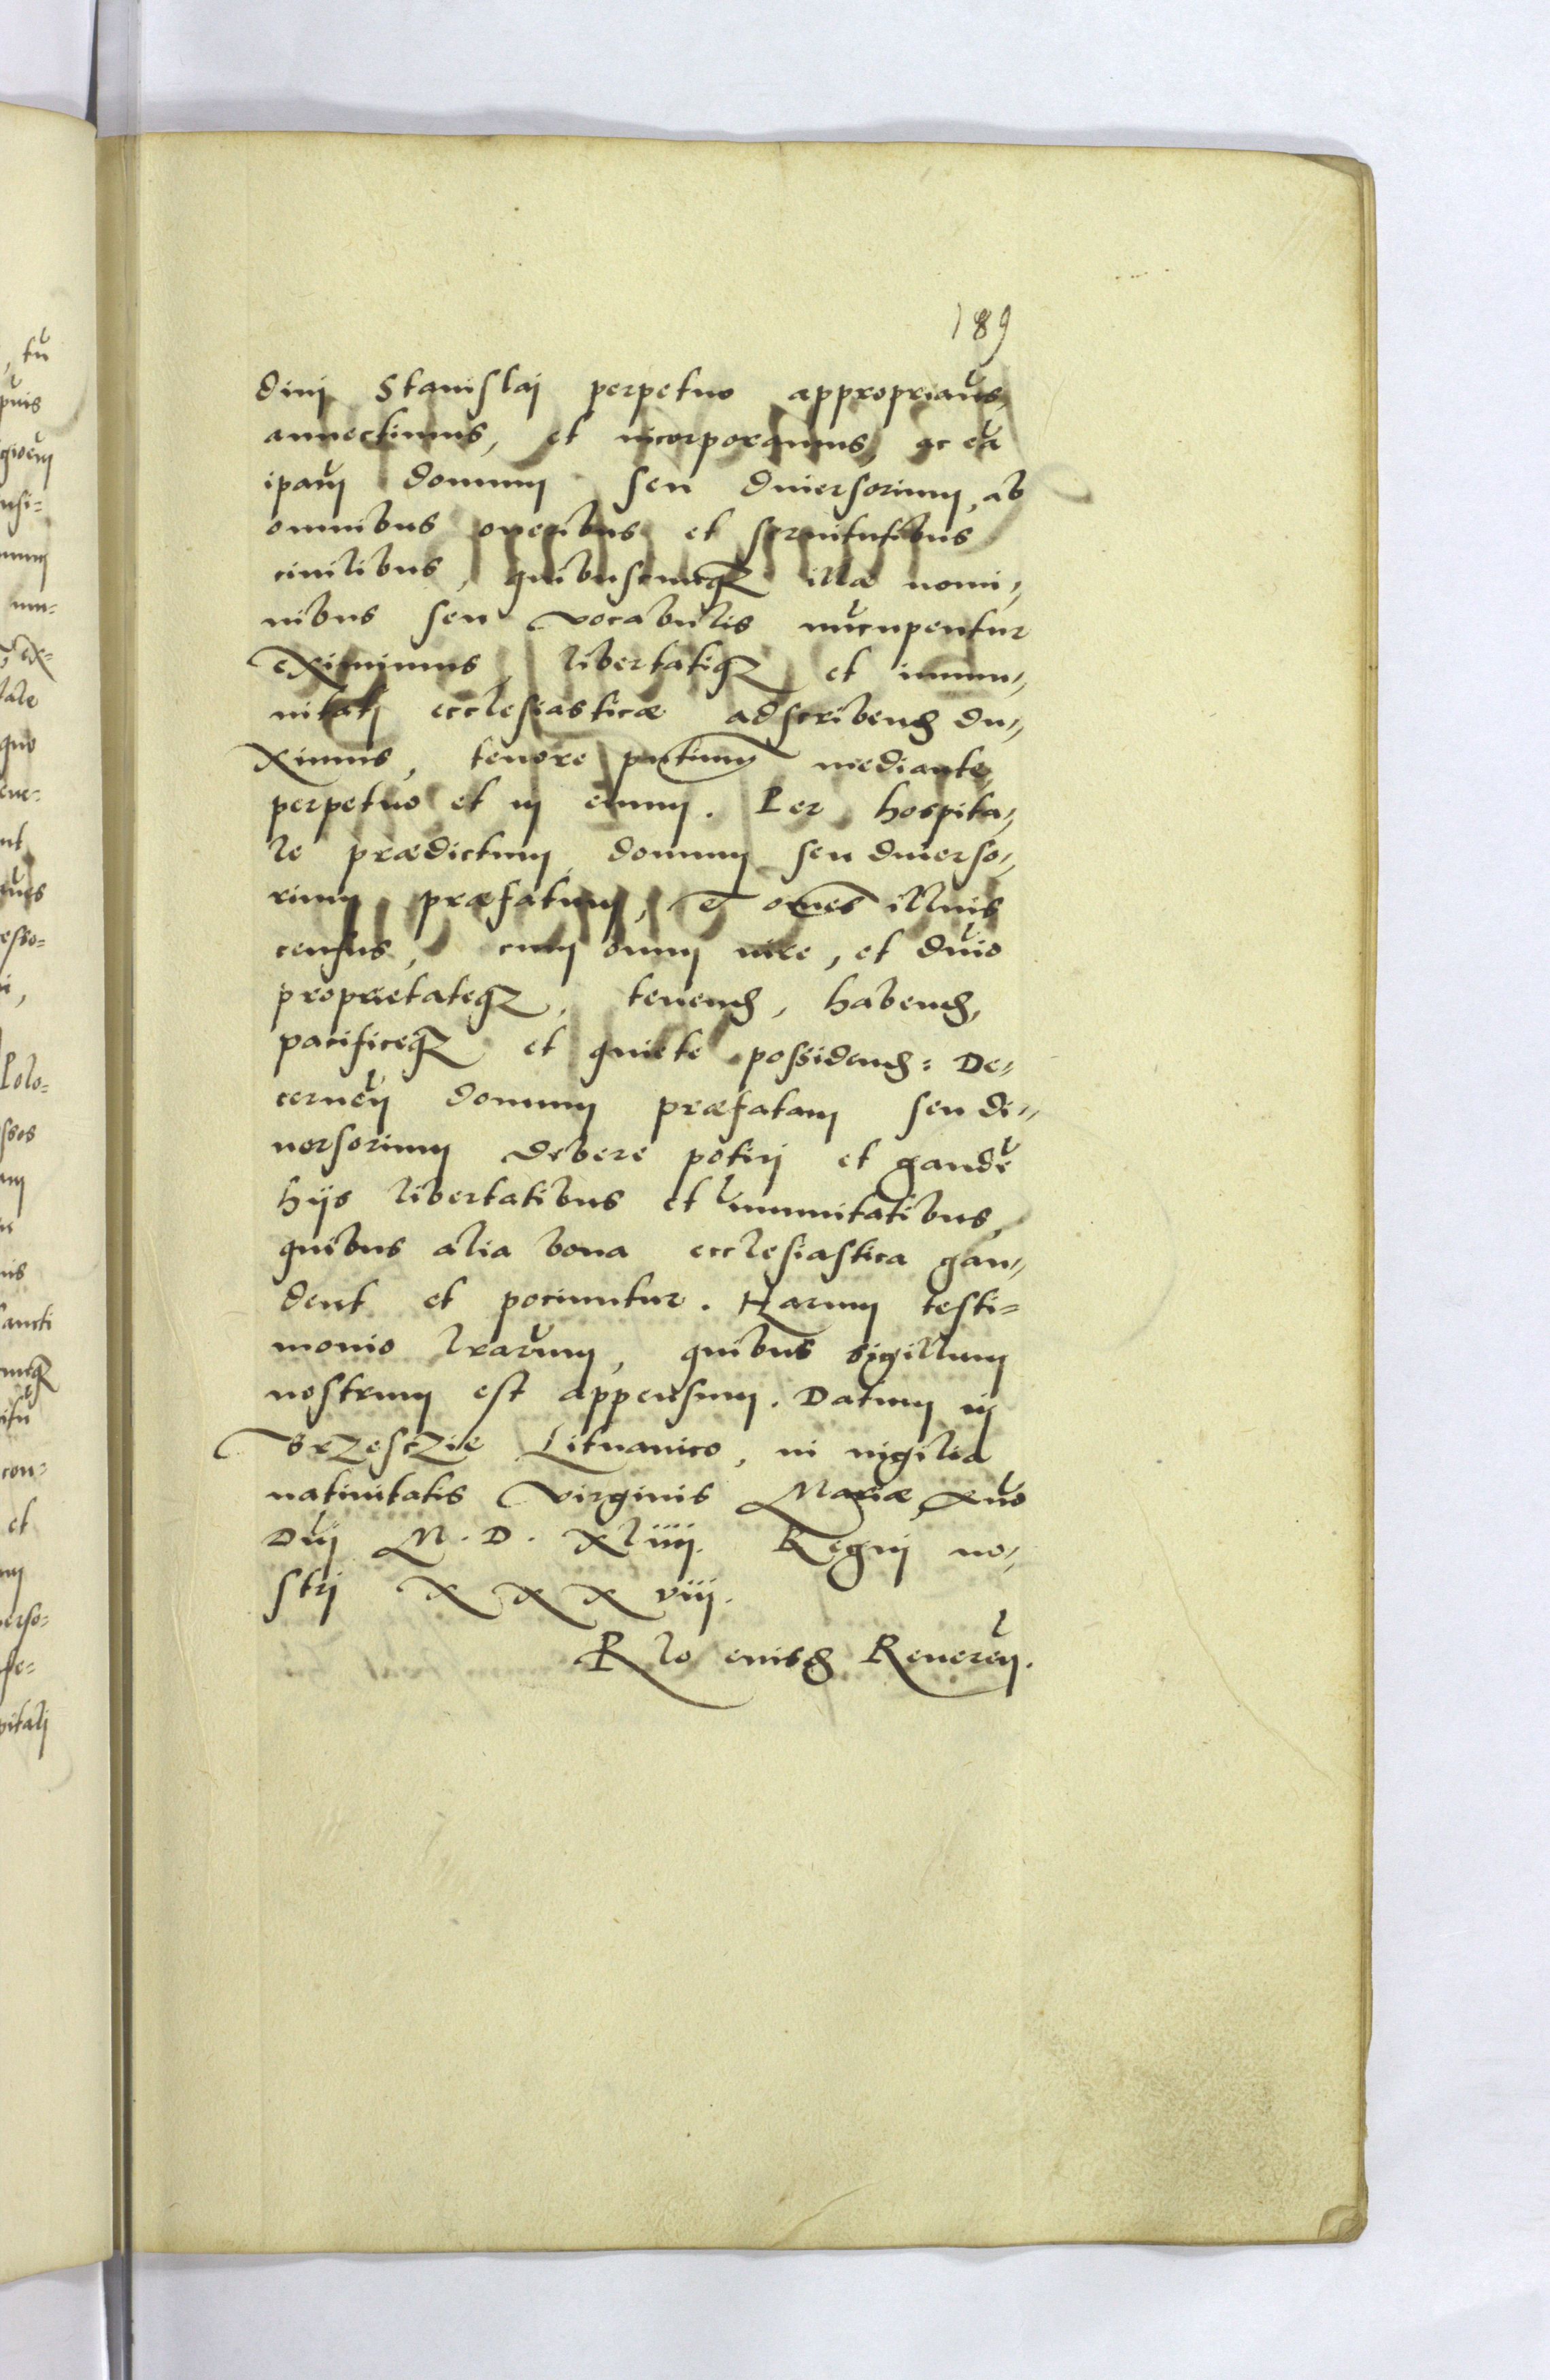 189
diui Stanislai perpetuo appropriam̃us,
annectimus, et incorporamus, ac eã
ip̃am domum seu diuersorium, ab
omnibus oneribus et seruitutibus
ciuilibus, quibuscunq; illæ nomi=
nibus seu vocabulis nũcupentur
Eximimus, libertatiq; et immu=
nitati ecclesiasticæ adscribend̃ du=
ximus, tenore pñtium mediante,
perpetuo et in euum. Per hospita=
le prædictum domum seu diuerso=
rium præfatum, et oẽs illius
census, cum omni iure, et dñio
proprietateq; tenend̃, habend̃,
pacificeq; et quiete possidend̃: De=
cerneñ domum præfatam seu di=
uersorium debere potiri et gaudẽ
hijs libertatibus et im̃unitatibus,
quibus alia bona ecclesiastica gau=
dent et pociuntur. Harum testi=
monio lrãrum, quibus sigillum
nostrum est appensum. Datum in
Brzesczie Lituanico, in uigilia
natiuitatis Virginis Mariæ, Añno
Dñi M. D. xliiii. Regni no=
strj X X X viij.
R lo eiusd̃ Reuereñ.
tũ
Polo=
ssos
sancti
con=
et
erso=
pitali